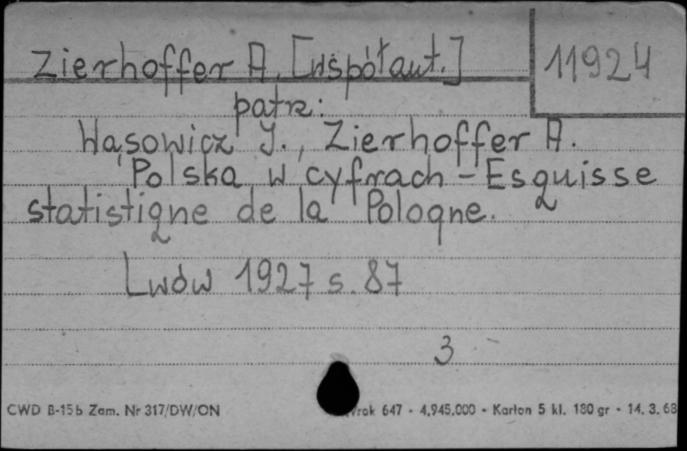 Zierhoffer A. [współaut.]
11924
patrz:
Wąsowicz J., Zierhoffer A.
Polska w cyfrach - Esquisse
statistique de la Pologne.
Lwów 1927 s. 87
3
CWD B-15b Zam. Nr 317/DW/ON
647 - 4.945.000 - Karton 5 kl. 180 gr - 14. 3. 68